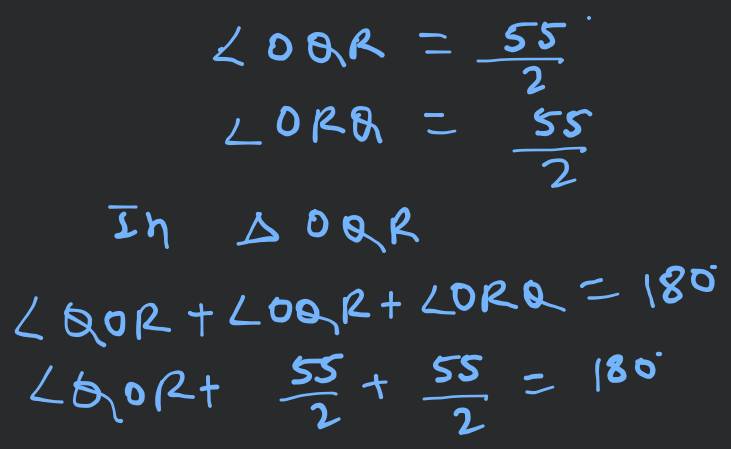 ∠OQR = 55°/2
∠ORQ = 55/2
In △OQR
∠QOR + ∠OQR + ∠ORQ = 180°
∠QOR + 55/2 + 55/2 = 180°